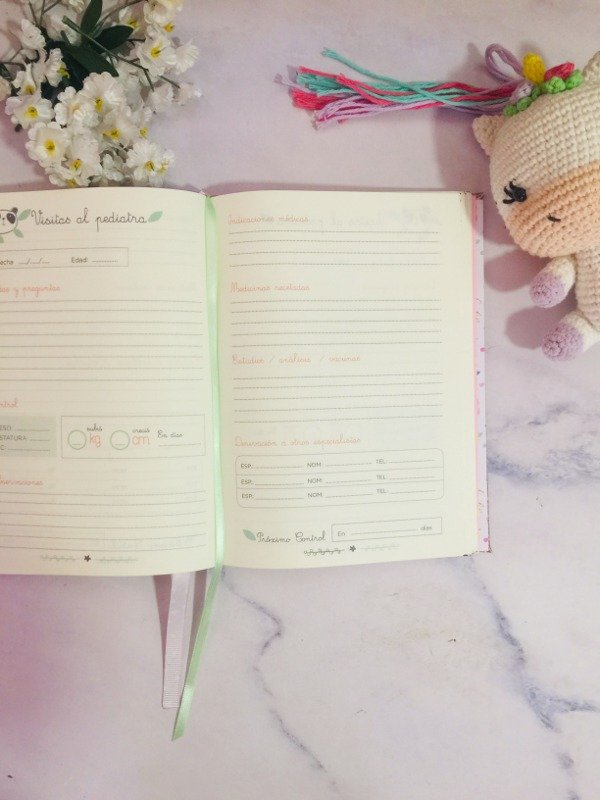 Visitas al pediatra
Fecha __/__/__ Edad: ______
y preguntas
subió creció
kg cm En días
Indicaciones médicas
Medicinas recetadas
Estudios / análisis / vacunas
Derivación a otros especialistas
ESP: NOM: TEL:
ESP: NOM: TEL:
ESP: NOM: TEL:
Próximo Control En días